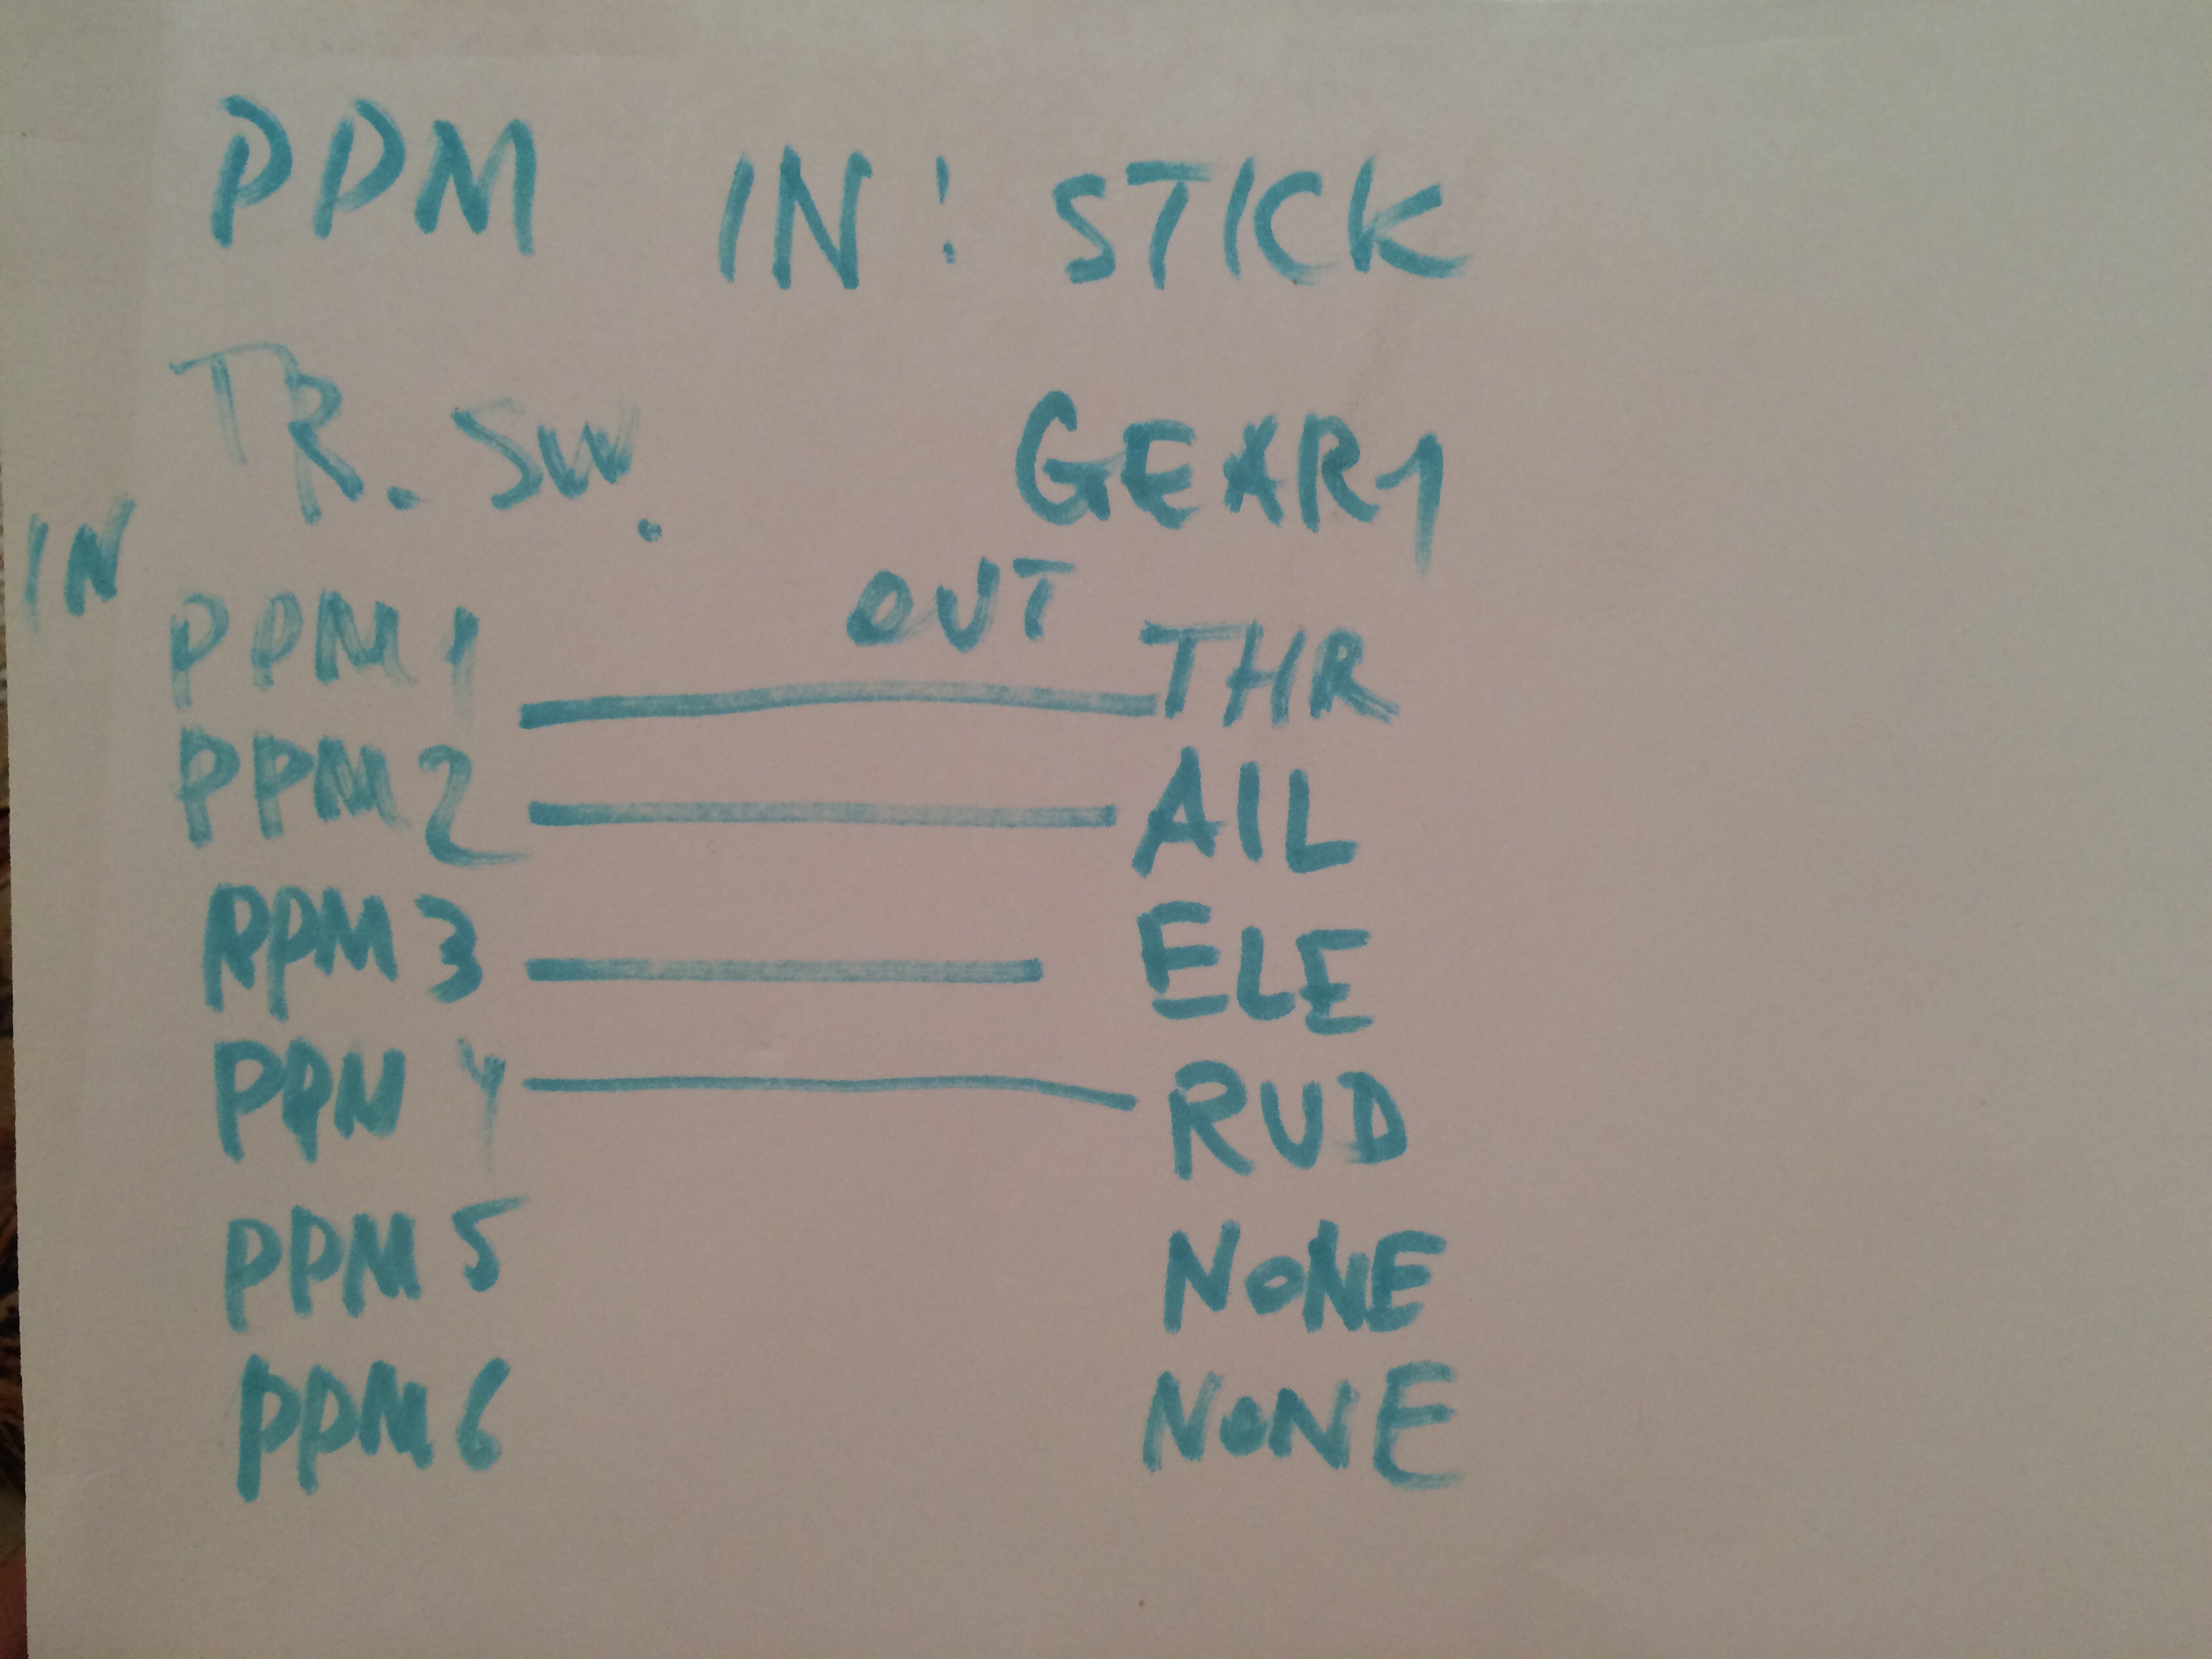 PPM IN: STICK
TR. SW. GEAR1
IN OUT
PPM1 THR
PPM2 AIL
PPM3 ELE
PPM 4 RUD
PPM 5 NONE
PPM6 NONE